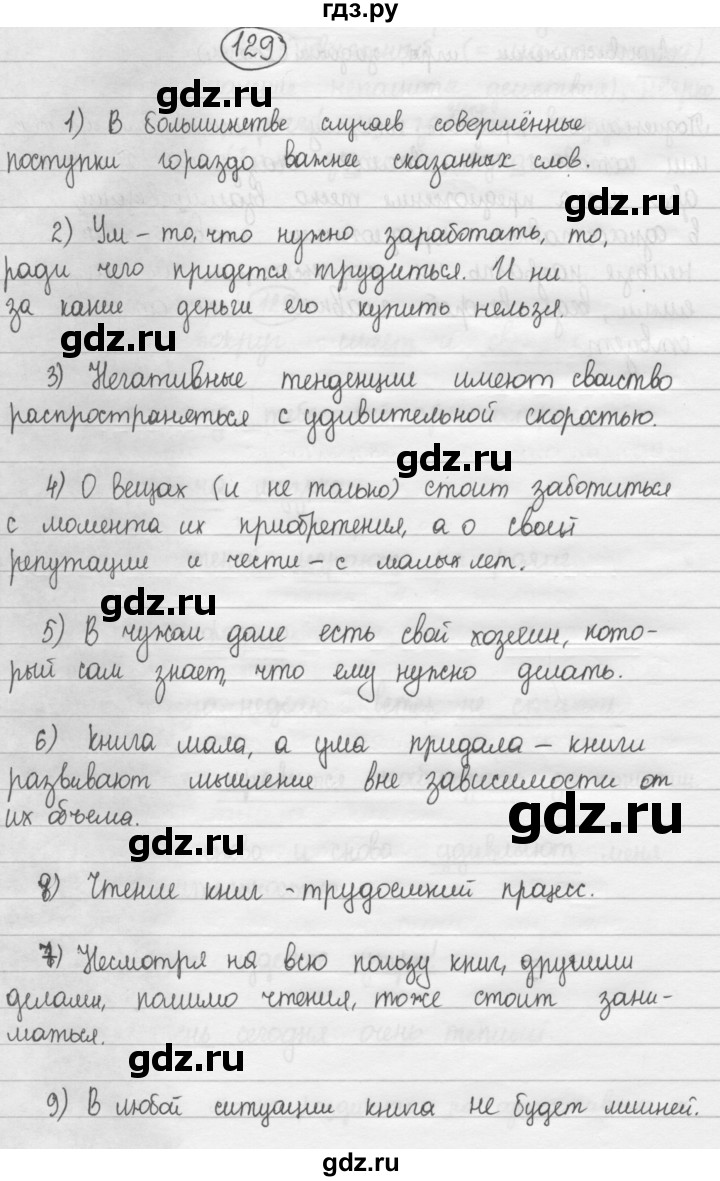 гдз.ру
129
gdz.ru
1) В большинстве случаев совершённые
поступки гораздо важнее сказанных слов.
gdz.ru
2) Ум – то, что нужно заработать, то,
ради чего придется трудиться. И ни
за какие деньги его купить нельзя.
gdz.ru
3) Негативные тенденции имеют свойство
распространяться с удивительной скоростью.
gdz.ru
4) О вещах (и не только) стоит заботиться
с момента их приобретения, а о своей
репутации и чести – с малых лет.
gdz.ru
5) В чужом доме есть свой хозяин, кото-
рый сам знает, что ему нужно делать.
gdz.ru
6) Книга мала, а ума придала – книги
развивают мышление вне зависимости от
их объема.
gdz.ru
8) Чтение книг – трудоемкий процесс.
gdz.ru
7) Несмотря на всю пользу книг, другими
делами, помимо чтения, тоже стоит зани-
маться.
gdz.ru
9) В любой ситуации книга не будет лишней.
gdz.ru